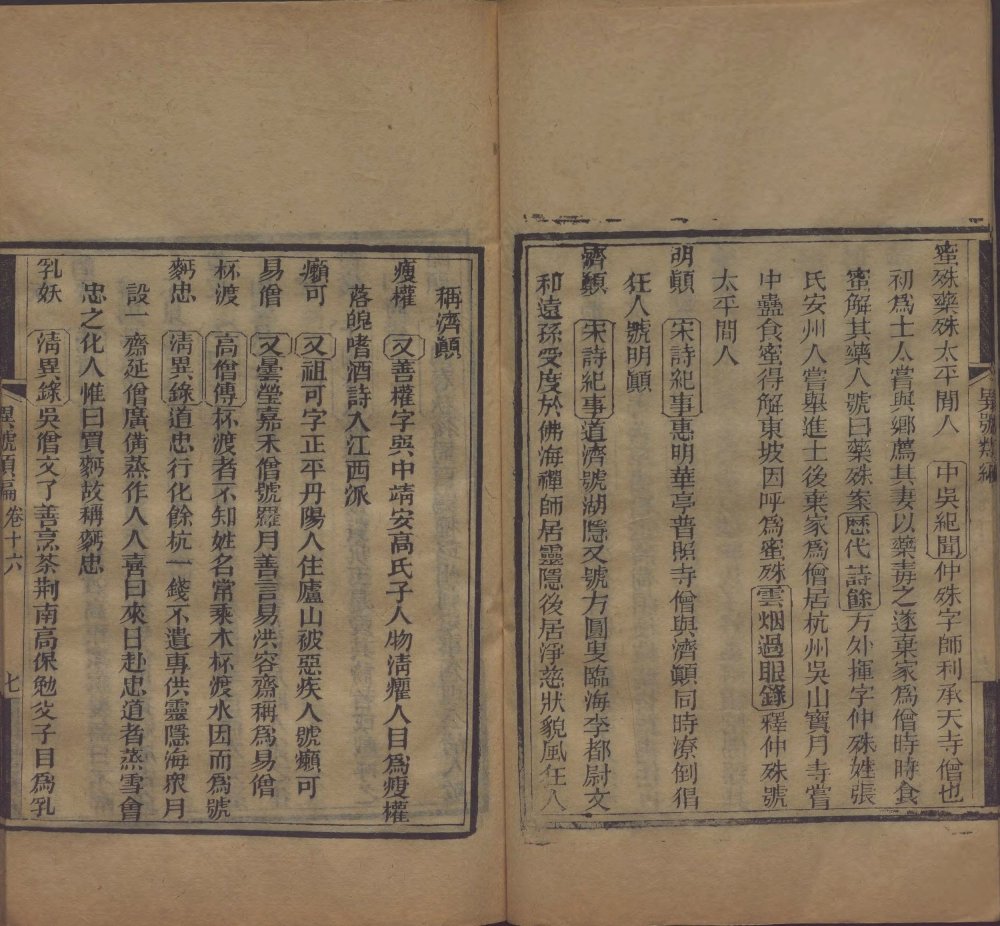 蜜殊藥殊太平閒人　中吳紀聞仲殊字師利承天寺僧也
初爲士人嘗與鄉薦其妻以藥毒之遂棄家爲僧時時食
蜜解其藥人號曰藥殊案歷代詩餘方外揮字仲殊姓張
氏安州人嘗舉進士後棄家爲僧居杭州吳山寶月寺嘗
中蠱食蜜得解東坡因呼爲蜜殊雲烟過眼錄釋仲殊號
太平閒人
明顚　宋詩紀事惠明華亭普照寺僧與濟顚同時潦倒猖
狂人號明顚
濟顚　宋詩紀事道濟號湖隱又號方圓叟臨海李都尉文
和遠孫受度於佛海禪師居靈隱後居淨慈狀貌風狂人
異號類編
稱濟顚
瘦權　又善權字巽中靖安高氏子人物淸癯人目爲瘦權
落魄嗜酒詩入江西派
癩可　又祖可字正平丹陽人住廬山被惡疾人號癩可
易僧　又曇瑩嘉禾僧號羅月善言易洪容齋稱爲易僧
杯渡　高僧傳杯渡者不知姓名常乘木杯渡水因而爲號
麪忠　淸異錄道忠行化餘杭一錢不遺專供靈隱海衆月
設一齋延僧廣備蒸作人人喜曰來日赴忠道者蒸雪會
忠之化人惟曰買麪故稱麪忠
乳妖　淸異錄吳僧文了善烹茶荆南高保勉父子目爲乳
異號類編　卷十六　七